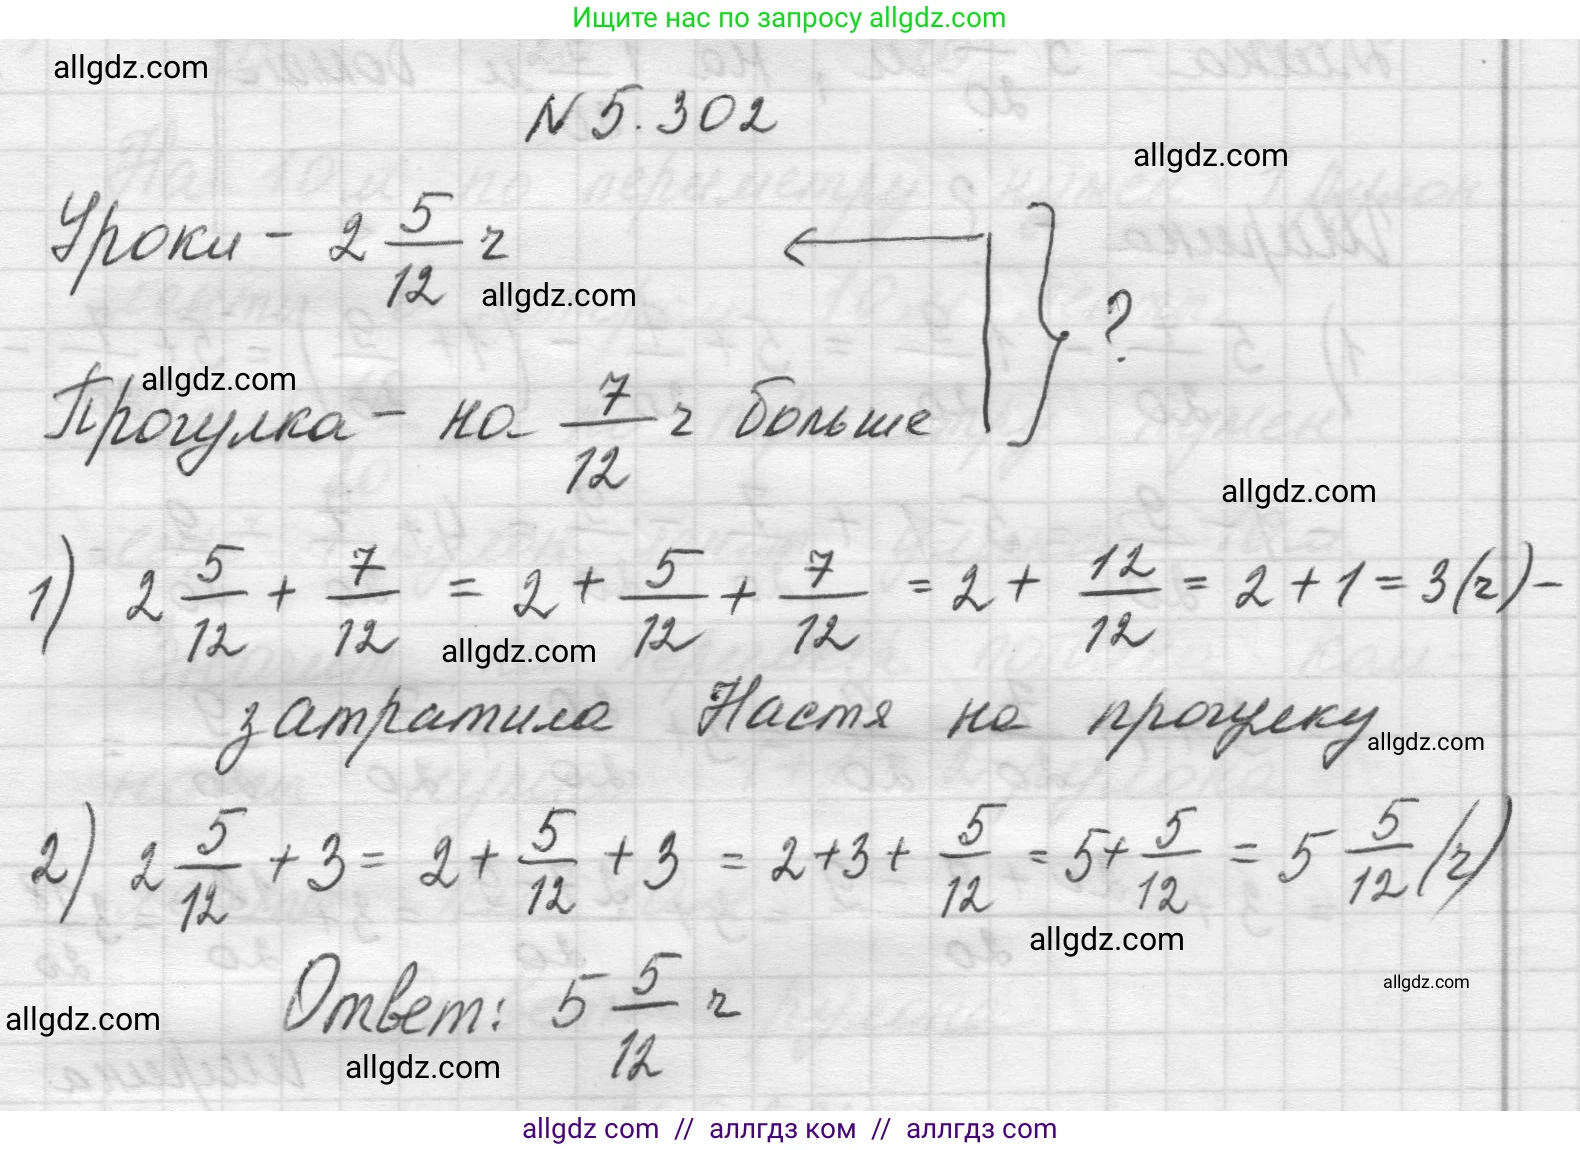 Ищите нас по запросу allgdz.com
allgdz.com
N 5.302
allgdz.com
Уроки - 2 5/12 ч
allgdz.com
?
allgdz.com
Прогулка - на 7/12 ч больше
allgdz.com
1) 2 5/12 + 7/12 = 2 + 5/12 + 7/12 = 2 + 12/12 = 2 + 1 = 3 (ч) -
allgdz.com
затратила Настя на прогулку
allgdz.com
2) 2 5/12 + 3 = 2 + 5/12 + 3 = 2 + 3 + 5/12 = 5 + 5/12 = 5 5/12 (ч)
allgdz.com
allgdz.com
Ответ: 5 5/12 ч
allgdz.com
allgdz.com
allgdz com // аллгдз ком // аллгдз.com